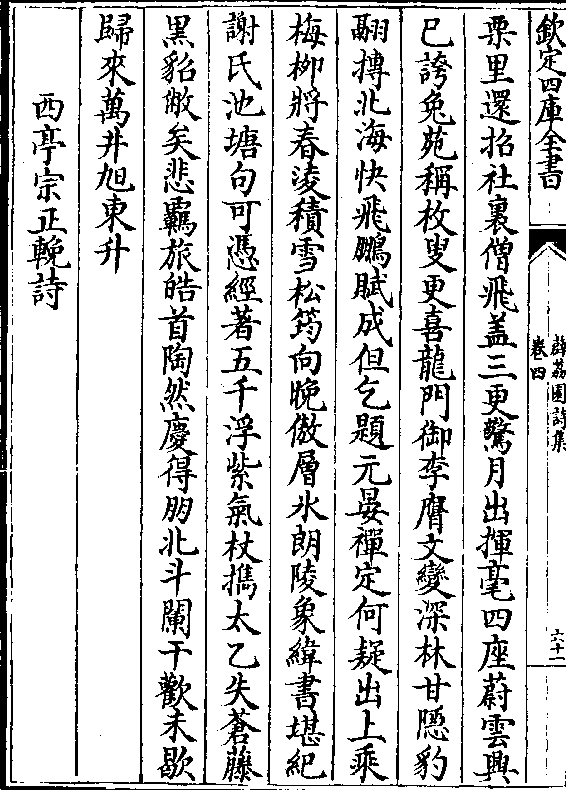 欽定四庫全書
薜荔園詩集
卷四
六十二
栗里還招社裏僧飛盖三更驚月出揮毫四座蔚雲興
已誇兔苑稱枚叟更喜龍門御李膺文變深林甘隱豹
翮摶北海快飛鵬賦成但乞題元晏禪定何疑出上乘
梅柳將春淩積雪松筠向晚傲層氷朗陵象緯書堪紀
謝氏池塘句可憑經著五千浮紫氣杖擕太乙失蒼藤
黒貂敝矣悲羈旅皓首陶然慶得朋北斗闌干歡未歇
歸來萬井旭東升
西亭宗正輓詩